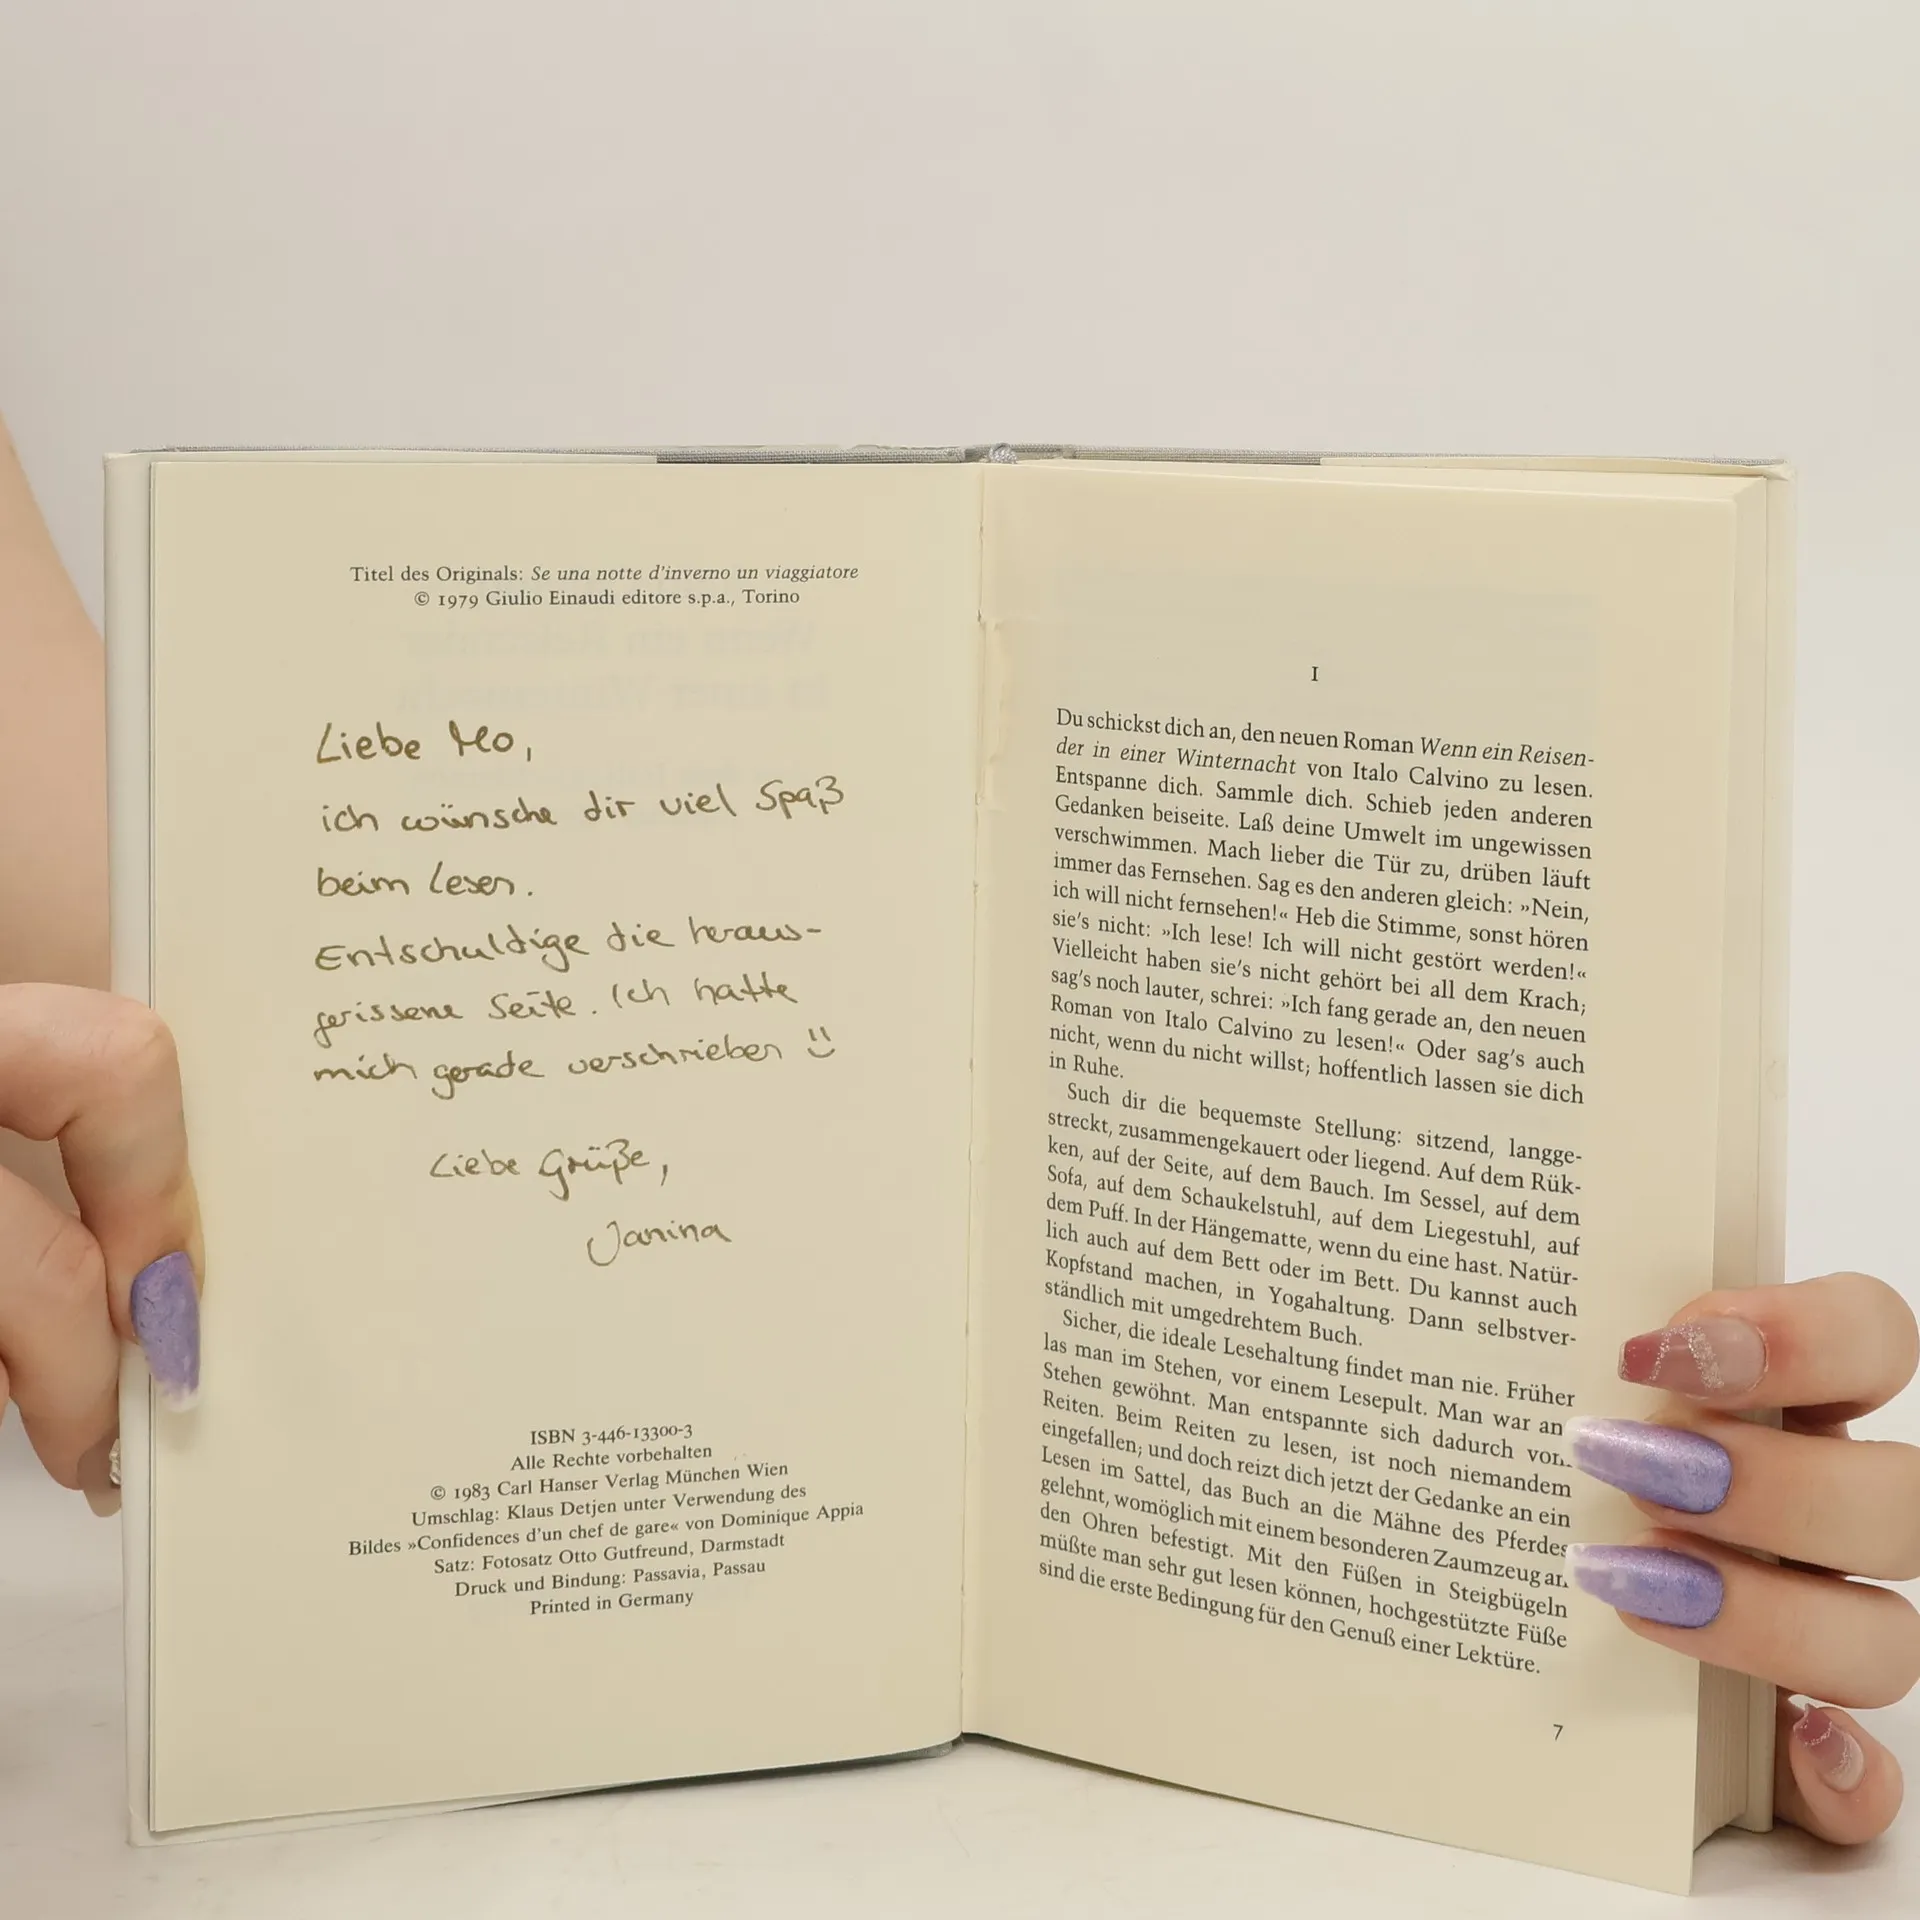 Titel des Originals: Se una notte d'inverno un viaggiatore
© 1979 Giulio Einaudi editore s.p.a., Torino
Liebe Mo,
ich wünsche dir viel Spaß
beim Lesen.
Entschuldige die heraus-
gerissene Seite. Ich hatte
mich gerade verschrieben
Liebe Grüße,
Janina
ISBN 3-446-13300-3
Alle Rechte vorbehalten
© 1983 Carl Hanser Verlag München Wien
Umschlag: Klaus Detjen unter Verwendung des
Bildes »Confidences d'un chef de gare« von Dominique Appia
Satz: Fotosatz Otto Gutfreund, Darmstadt
Druck und Bindung: Passavia, Passau
Printed in Germany
I
Du schickst dich an, den neuen Roman Wenn ein Reisen-
der in einer Winternacht von Italo Calvino zu lesen.
Entspanne dich. Sammle dich. Schieb jeden anderen
Gedanken beiseite. Laß deine Umwelt im ungewissen
verschwimmen. Mach lieber die Tür zu, drüben läuft
immer das Fernsehen. Sag es den anderen gleich: »Nein,
ich will nicht fernsehen!« Heb die Stimme, sonst hören
sie's nicht: »Ich lese! Ich will nicht gestört werden!«
Vielleicht haben sie's nicht gehört bei all dem Krach;
sag's noch lauter, schrei: »Ich fang gerade an, den neuen
Roman von Italo Calvino zu lesen!« Oder sag's auch
nicht, wenn du nicht willst; hoffentlich lassen sie dich
in Ruhe.
Such dir die bequemste Stellung: sitzend, langge-
streckt, zusammengekauert oder liegend. Auf dem Rük-
ken, auf der Seite, auf dem Bauch. Im Sessel, auf dem
Sofa, auf dem Schaukelstuhl, auf dem Liegestuhl, auf
dem Puff. In der Hängematte, wenn du eine hast. Natür-
lich auch auf dem Bett oder im Bett. Du kannst auch
Kopfstand machen, in Yogahaltung. Dann selbstver-
ständlich mit umgedrehtem Buch.
Sicher, die ideale Lesehaltung findet man nie. Früher
las man im Stehen, vor einem Lesepult. Man war an
Stehen gewöhnt. Man entspannte sich dadurch vom
Reiten. Beim Reiten zu lesen, ist noch niemandem
eingefallen; und doch reizt dich jetzt der Gedanke an ein
Lesen im Sattel, das Buch an die Mähne des Pferdes
gelehnt, womöglich mit einem besonderen Zaumzeug an
den Ohren befestigt. Mit den Füßen in Steigbügeln
müßte man sehr gut lesen können, hochgestützte Füße
sind die erste Bedingung für den Genuß einer Lektüre.
7